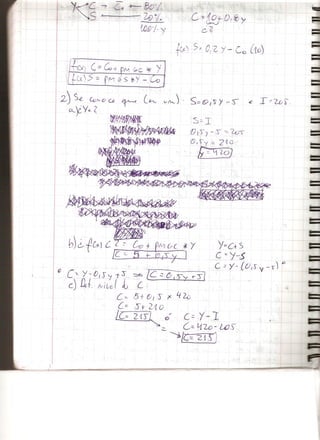 Y C → 80%
S → 20%
100% Y
C = 10 + 0,8 y
fun S = 0,2 Y - Co (10)
fon C = Co + pmac * Y
f(x) S = pmas * Y - Co
2) Se conoce que (en um) S = 0,5 Y - 5 e I = 205
a) ¿Y = ?
S = I
0,5 y - 5 = 205
0,5 y = 210
y = 420
b) ¿ f(x) C? C = Co + pmac * Y
C = 5 + 0,5 y
Y = C + S
C = Y - S
C = Y - (0,5 y - 5)
o C = y - 0,5 y + 5 ⇒ C = 0,5 y + 5
c) Det. nivel de C
C = 5 + 0,5 * 420
C = 5 + 210
C = 215 o C = Y - I
C = 420 - 205
C = 215